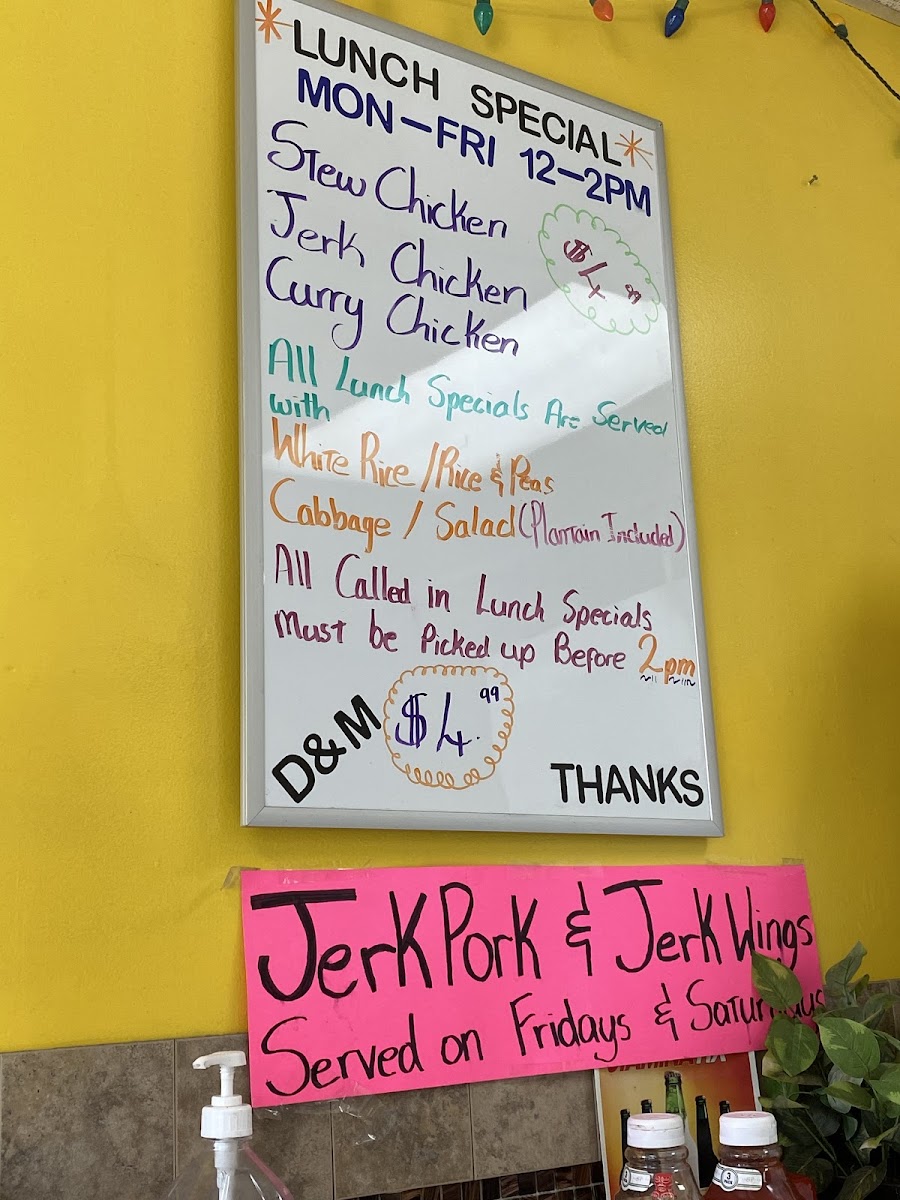 *LUNCH SPECIAL*
MON-FRI 12-2PM
Stew Chicken
Jerk Chicken
Curry Chicken
$4.99
All Lunch Specials Are Served
with
White Rice / Rice & Peas
Cabbage / Salad (Plantain Included)
All Called in Lunch Specials
Must be Picked up Before 2pm
D&M
$4.99
THANKS
Jerk Pork & Jerk Wings
Served on Fridays & Saturdays